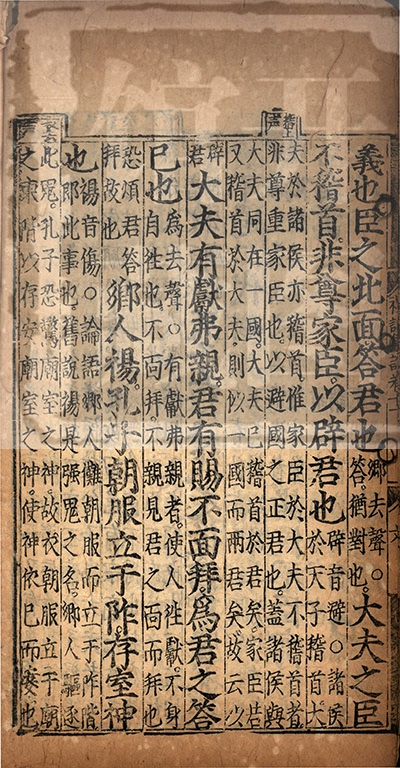 義也臣之北面答君也鄉去聲○答猶對也大夫之臣
不稽首非尊家臣以辟君也辟音避○諸侯於天子稽首大
夫於諸侯亦稽首惟家臣於大夫不稽首者
非尊重家臣也以避國之正君也蓋諸侯與
大夫同在一國大夫已稽首於君矣家臣若
又稽首於大夫則似一國而兩君矣故云以
辟君大夫有獻弗親君有賜不面拜為君之答
己也為去聲○有獻弗親者使人往獻不身
自往也不面拜不親見君之面而拜也
恐煩君答拜故也鄉人禓孔子朝服立于阼存室神
也禓音傷○論語鄉人儺朝服而立于阼階
即此事也舊說禓是强鬼之名鄉人驅逐
此鬼孔子恐驚廟室之神故衣朝服立于廟
之東階以存安廟室之神使神依己而安也